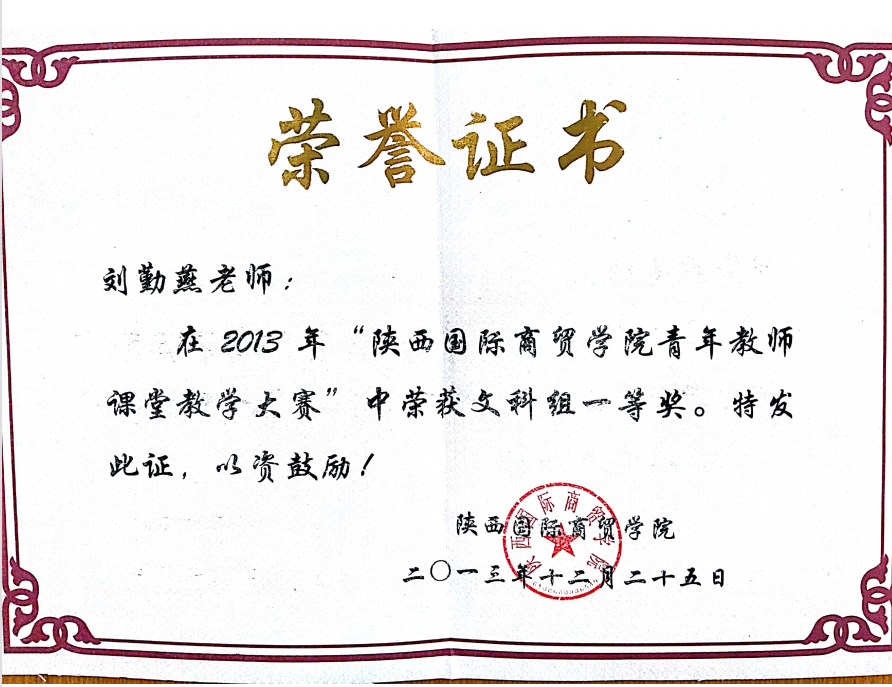 荣誉证书
刘勤燕老师：
在2013年“陕西国际商贸学院青年教师
课堂教学大赛”中荣获文科组一等奖。特发
此证，以资鼓励！
陕西国际商贸学院
二〇一三年十二月二十五日
陕西国际商贸学院